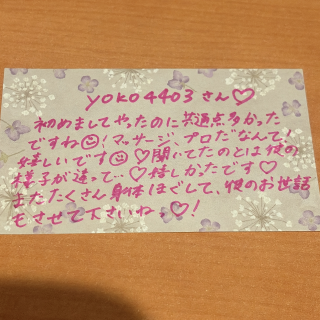 yoko4403さん♡
初めましてやったのに共通点多かった
ですね☺!マッサージ、プロだなんて!
嬉しいです☺♡聞いてたのとは彼の
様子が違って…♡嬉しかったです♡
またたくさん身体ほぐして、彼のお世話
もさせて下さいねっ♡!